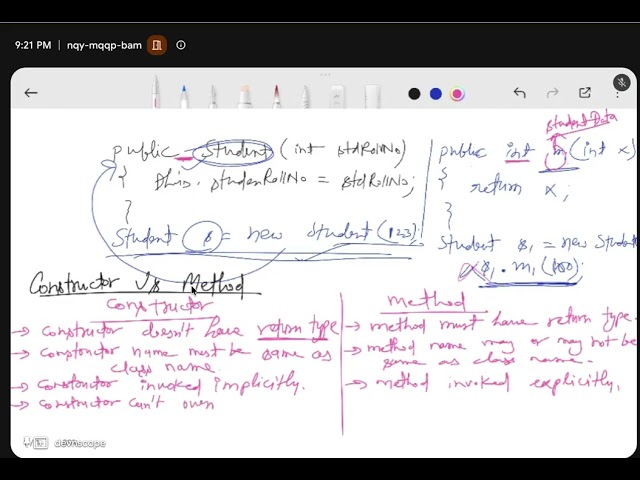 9:21 PM | nqy-mqqp-bam
student Data
public Student (int stdRollNo)
{ this.studenRollNo = stdRollNo;
}
Student s = new Student(123);
public int m, (int x)
{
return x;
}
Student s1 = new Student
s1.m1(100);
Constructor V/s Method
Constructor
→ constructor doesn't have return type
→ constructor name must be same as
class name.
→ constructor invoked implicitly.
→ constructor can't overr
method
→ method must have return type.
→ method name may or may not be
same as class name.
→ method invoked explicitly.
devnscope